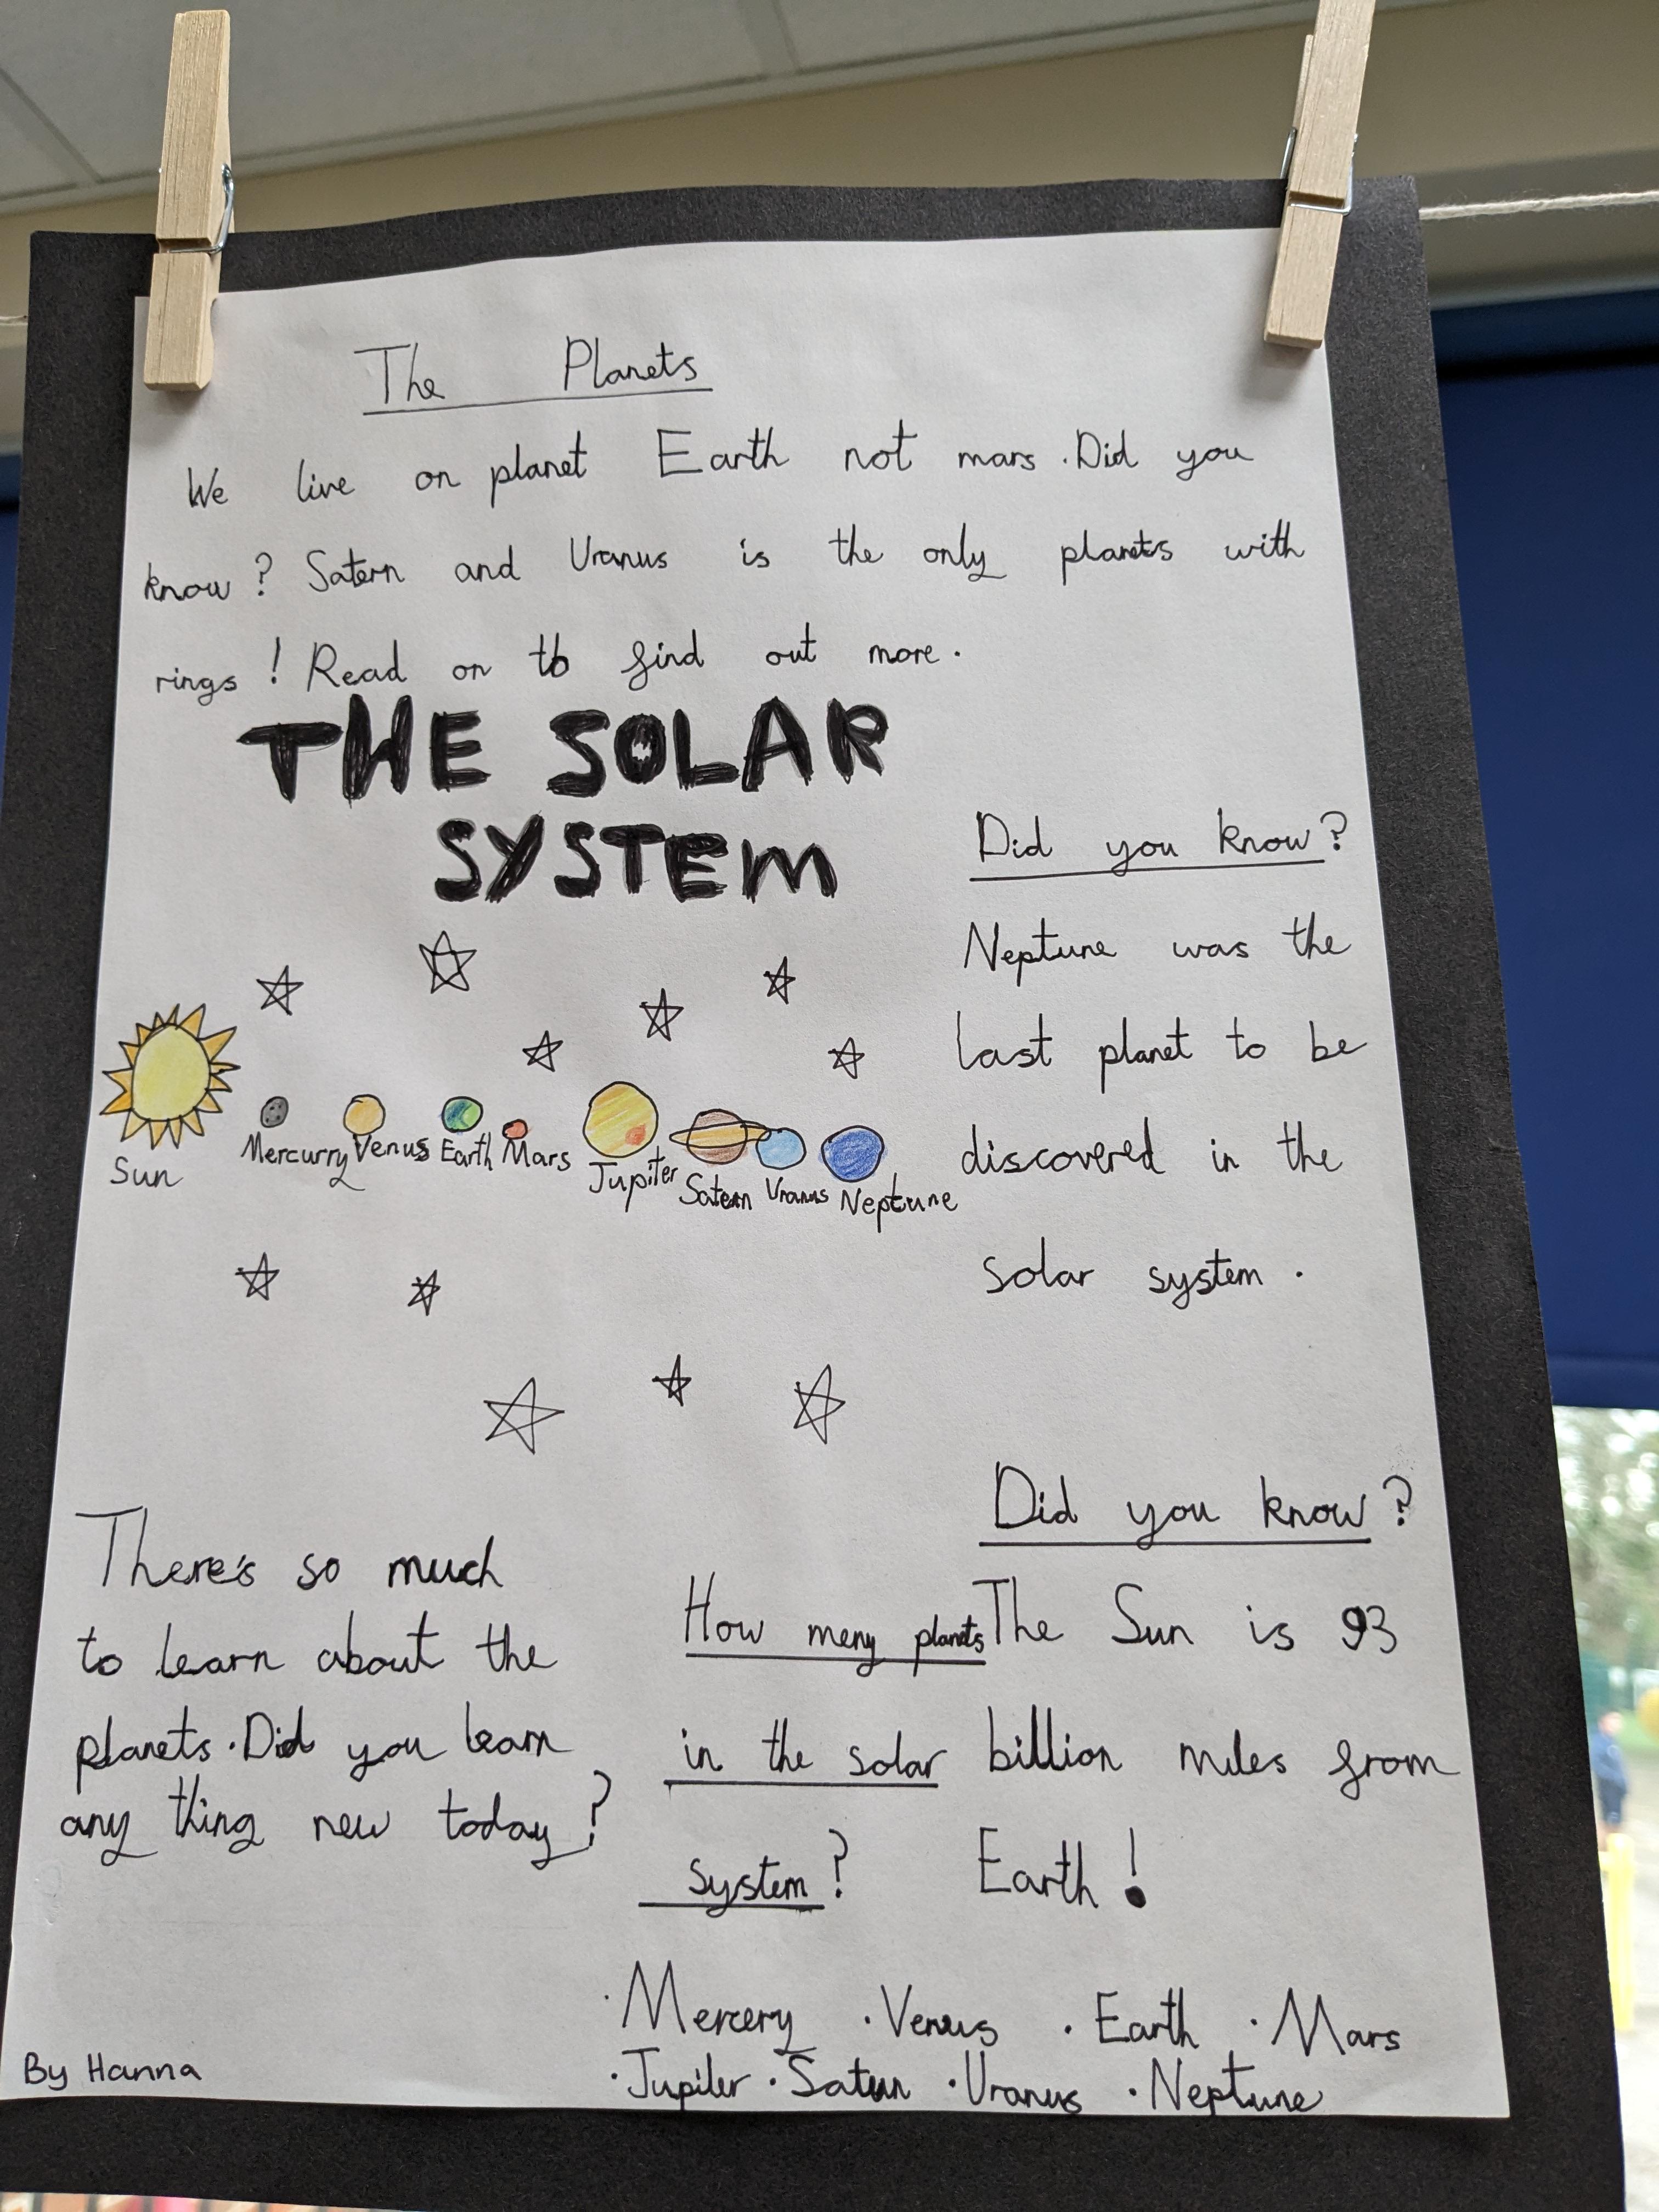 The Planets
We live on planet Earth not mars. Did you
know? Satern and Uranus is the only planets with
rings! Read on to find out more.
THE SOLAR
SYSTEM
Did you know?
Neptune was the
last planet to be
discovered in the
solar system.
Sun
Mercurry
Venus
Earth
Mars
Jupiter
Satern
Uranus
Neptune
There's so much
to learn about the
planets. Did you learn
any thing new today?
How meny planets
in the solar
system?
Did you know?
The Sun is 93
billion miles from
Earth!
· Mercery · Venus · Earth · Mars
· Jupiter · Saturn · Uranus · Neptune
By Hanna